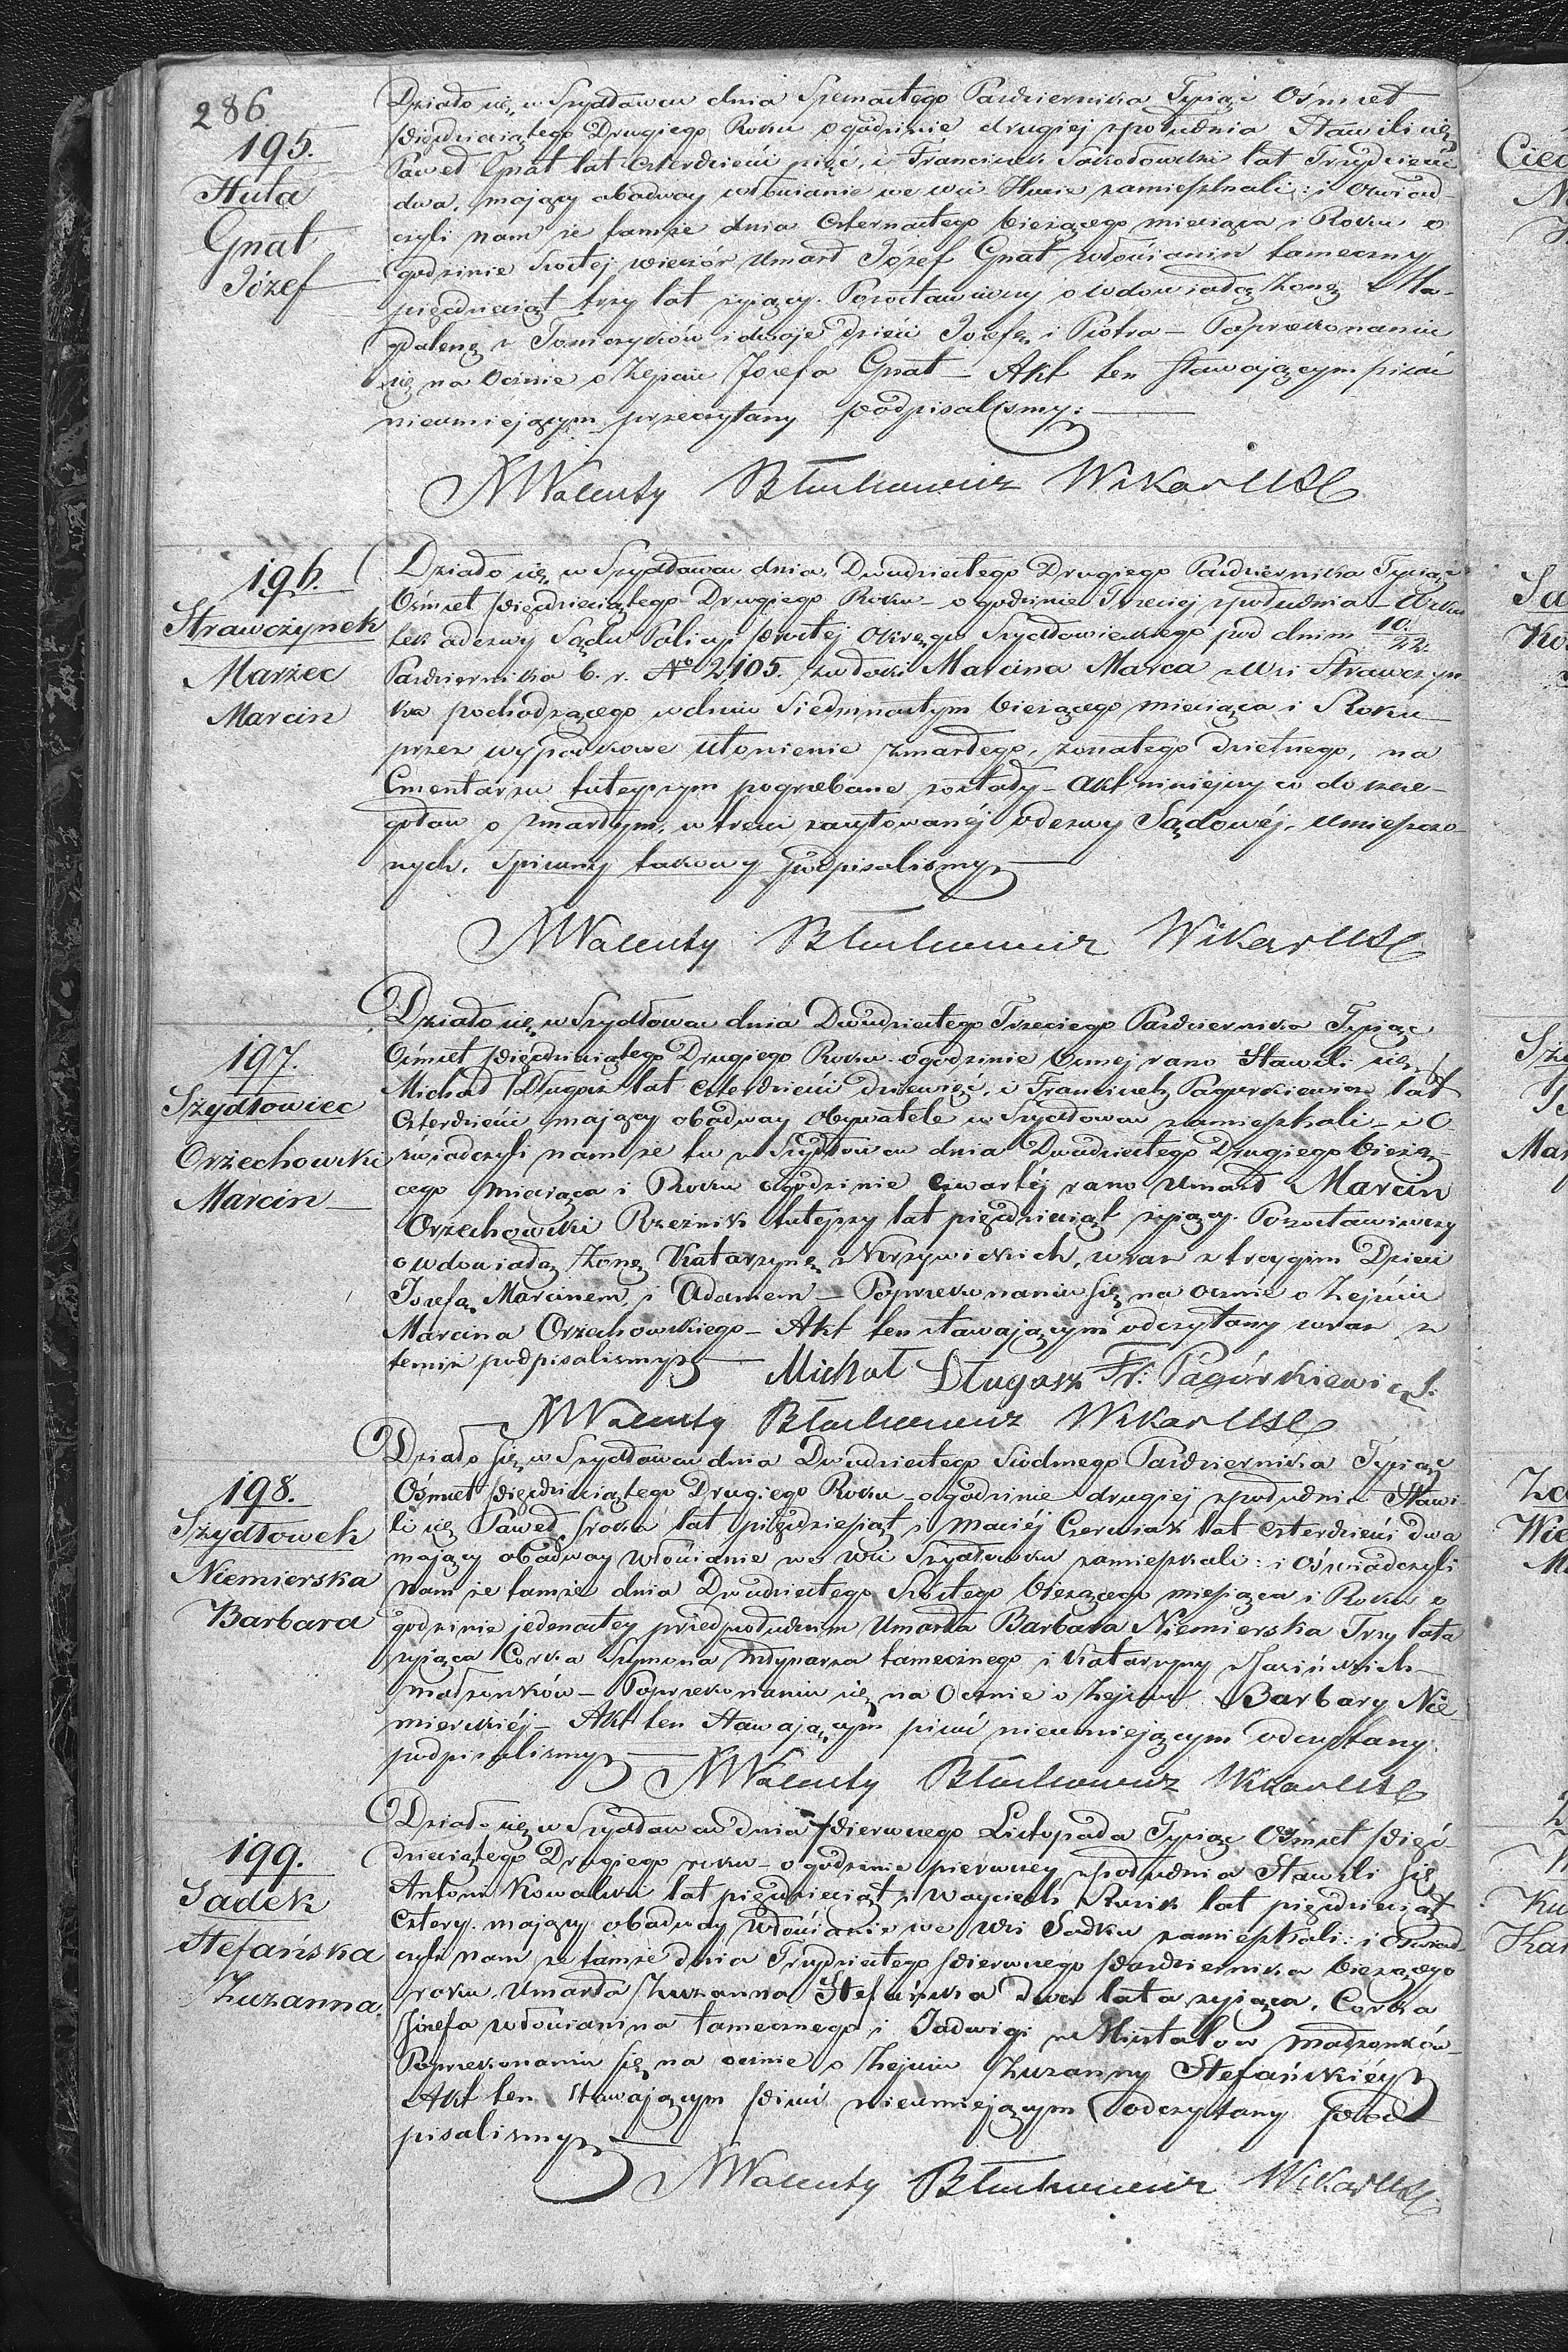 286.
195.
Huta
Gnat
Józef
Działo się w Szydłowcu dnia Pazdziernika Tysiąc Ośmset
Piędziesiątego Drugiego Roku o godzinie drugiej z południa Stawili się
Paweł Gnat lat czterdzieści pięć, i Franciszek Sokołowski lat Trzydzieści
dwa, mający obadway włościanie we wsi Hucie zamieszkali: i Oswiad-
czyli nam że tamże dnia czternastego bieżącego miesiąca i Roku o
godzinie szostej wieczór Umarł Józef Gnat włościanin tameczny
pięćdziesiąt trzy lat zyiący. Pozostawiwszy owdowiałą Zonę Ma-
gdalenę z Tomczyków i dwoje dzieci Józefę i Piotra – Poprzekonaniu
się na Ocznie o Zejściu Józefa Gnat – Akt ten stawającym pisać
nieumiejącym przeczytany podpisalismy:
X Walenty Błuchowicz Wikar USC
196.
Strawczynek
Marzec
Marcin
Działo się w Szydłowcu dnia Dwudziestego Drugiego Pazdziernika Tysiąc
Ośmset Pięćdziesiątego Drugiego Roku – o godzinie Trzeciej z południa – W sku
tek odezwy Sądu Policyi Prostej Okręgu Szydłowieckiego pod dniem 10/22.
Pazdziernika b. r. No 2105. zwłoki Marcina Marca z Wsi Strawczyn
ka pochodzącego w dniu Siedmnastym bieżącego miesiąca i Roku
przez wypadkowe utonienie zmarłego, zonatego dzietnego, na
Cmentarzu tutejszym pogrzebane zostały – akt niniejszy co do szcze-
gołow o zmarłym, w treści zacytowanéj odezwy Sądowéj, umieszczo-
nych. Spisany takowy podpisalismy
X Walenty Błuchowicz Wikar USC
197.
Szydłowiec
Orzechowski
Marcin
Działo się w Szydłowcu dnia Dwudziestego Trzeciego Pazdziernika Tysiąc
Ośmset Pięćdziesiątego Drugiego Roku o godzinie Osmej rano Stawili się
Michał Długosz lat czterdzieści dziewięć, i Franciszek Pagurkiewicz lat
Czterdzieści mający obadway Obywatele w Szydłowcu zamieszkali – i O
swiadczyli nam że tu w Szydłowcu dnia Dwudziestego Drugiego bieżą-
cego miesiąca i Roku o godzinie czwartéj rano Umarł Marcin
Orzechowski Rzeźnik tutejszy lat pięćdziesiąt zyiący. Pozostawiwszy
owdowiałą Zonę Katarzynę z Krzywickich, wraz z trojgiem Dzieci
Józefą, Marcinem, i Adamem – Poprzekonaniu się na ocznie o Zejściu
Marcina Orzechowskiego – Akt ten stawającym odczytany wraz z
temiż podpisalismy – Michał Długosz Fr: Pagórkiewicz.
X Walenty Błuchowicz Wikar USC
198.
Szydłowek
Niemierska
Barbara
Działo się w Szydłowcu dnia Dwudziestego Siodmego Pazdziernika Tysiąc
Ośmset Pięćdziesiątego Drugiego Roku o godzinie drugiej z południa Stawi-
li się Paweł Sroka lat pięćdziesiąt i Maciéj Czerwiak lat czterdzieści dwa
mający obadway włościanie we wsi Szydłowku zamieszkali: i Oświadczyli
Nam że tamże dnia Dwudziestego Szostego bieżącego miesiąca i Roku o
godzinie jedenastey przedpołudniem Umarła Barbara Niemierska Trzy lata
zyiąca Corka Szymona młynarza tamecznego i Katarzyny z Jasińskich
małżonków – Poprzekonaniu się na Ocznie o Zejściu Barbary Nie
mierskiéj – Akt ten Stawającym pisać nieumiejącym odczytany
podpisalismy – X Walenty Błuchowicz Wikar USC
199.
Sadek
Stefańska
Zuzanna
Działo się w Szydłowcu dnia Pierwszego Listopada Tysiąc Ośmset Pięć-
dziesiątego Drugiego roku – o godzinie pierwszej z południa Stawili się
Antoni Kowalski lat pięćdziesiąt i Woyciech lat pięćdziesiąt
cztery. mający obadway włościanie we wsi Sadku zamieszkali: i Oswiad-
czyli nam że tamże dnia Trzydziestego Pierwszego Pazdziernika bieżącego
roku, Umarła Zuzanna Stefańska dwa lata zyiąca, Corka
Józefa włościanina tamecznego i Jadwigi z małzonków
Poprzekonaniu się na ocznie o Zejściu Zuzanny Stefańskiéy
Akt ten Stawającym Pisać nieumiejącym odczytany pod
pisalismy
X Walenty Błuchowicz Wikar USC